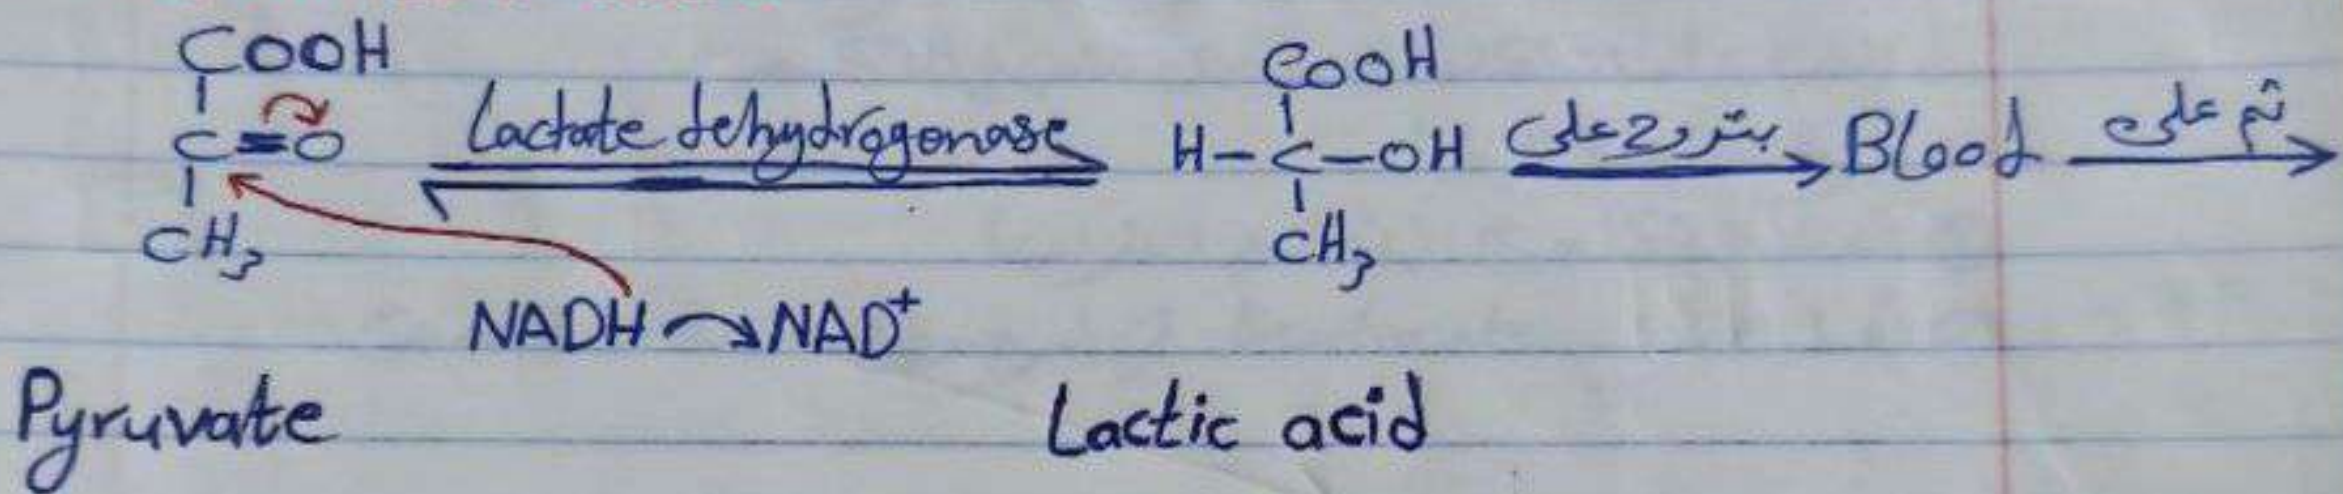 COOH
C=O
CH3
Lactate dehydrogenase
NADH NAD+
COOH
H-C-OH
CH3
بتروح على
Blood
ثم على
Pyruvate
Lactic acid